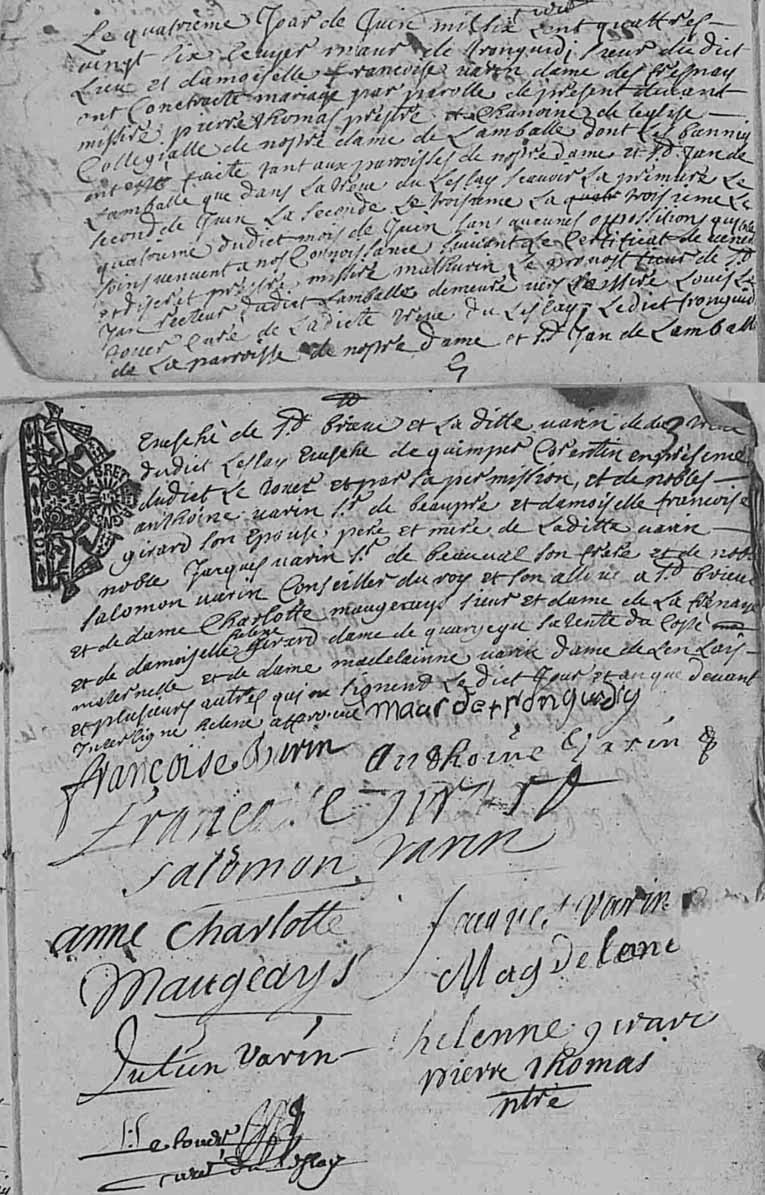 Le quatrième Jour de Juin mil six cent quattres-
vingt six escuyer maur de tronguidi sieur dudict
Lieu et damoiselle francoise varin dame des fresnay
ont Conctracté mariage par parolle de present devant
missire pierre thomas prestre et Chanoine de leglise
Collegialle de nostre dame de Lamballe dont Les bannies
ont esté faicte tant aux parroisses de nostre dame et St Jan de
Lamballe que dans La treve du Leslay scavoir La premiere Le
second de Juin La seconde Le troisieme La troisieme Le
dudict mois de Juin sans aucunes oppositions
venuent a nos Connoissance suivant Le Certificat de
et discret prestre missire mathurin Le provost sieur de St
Jan recteur dudict Lamballe demeure vers missire Louis Le
Curé de Ladicte treve du Leslay Ledict tronguidi
de La parroisse de nostre dame et St Jan de Lamballe
Evesché de St brieuc et La ditte varin de treve
dudict Leslay Evesche de quimper Corentin en presence
dudict Le et par sa permission, et de nobles
anthoine varin sr de beaupré et damoiselle francoise
girard son Epouse pere et mere de Laditte varin
noble Jacques varin sr de beauval son frere et de
salomon varin Conseiller du roy et son a St brieuc
et de dame Charlotte maugeays sieur et dame de La
et de damoiselle helene girard dame de sa tente du Costé
maternelle et de dame madelainne varin dame de
et plusieurs autres qui signent Le dict Jour et an que devant
Interligne helene approuvé maur de tronguidy
françoise Varin anthoine Varin
Francoise girard
salomon varin
anne Charlotte
Maugeays
Jacques varin
Magdelene
Julien varin
helenne girard
pierre thomas
ptre
curé du Leslay